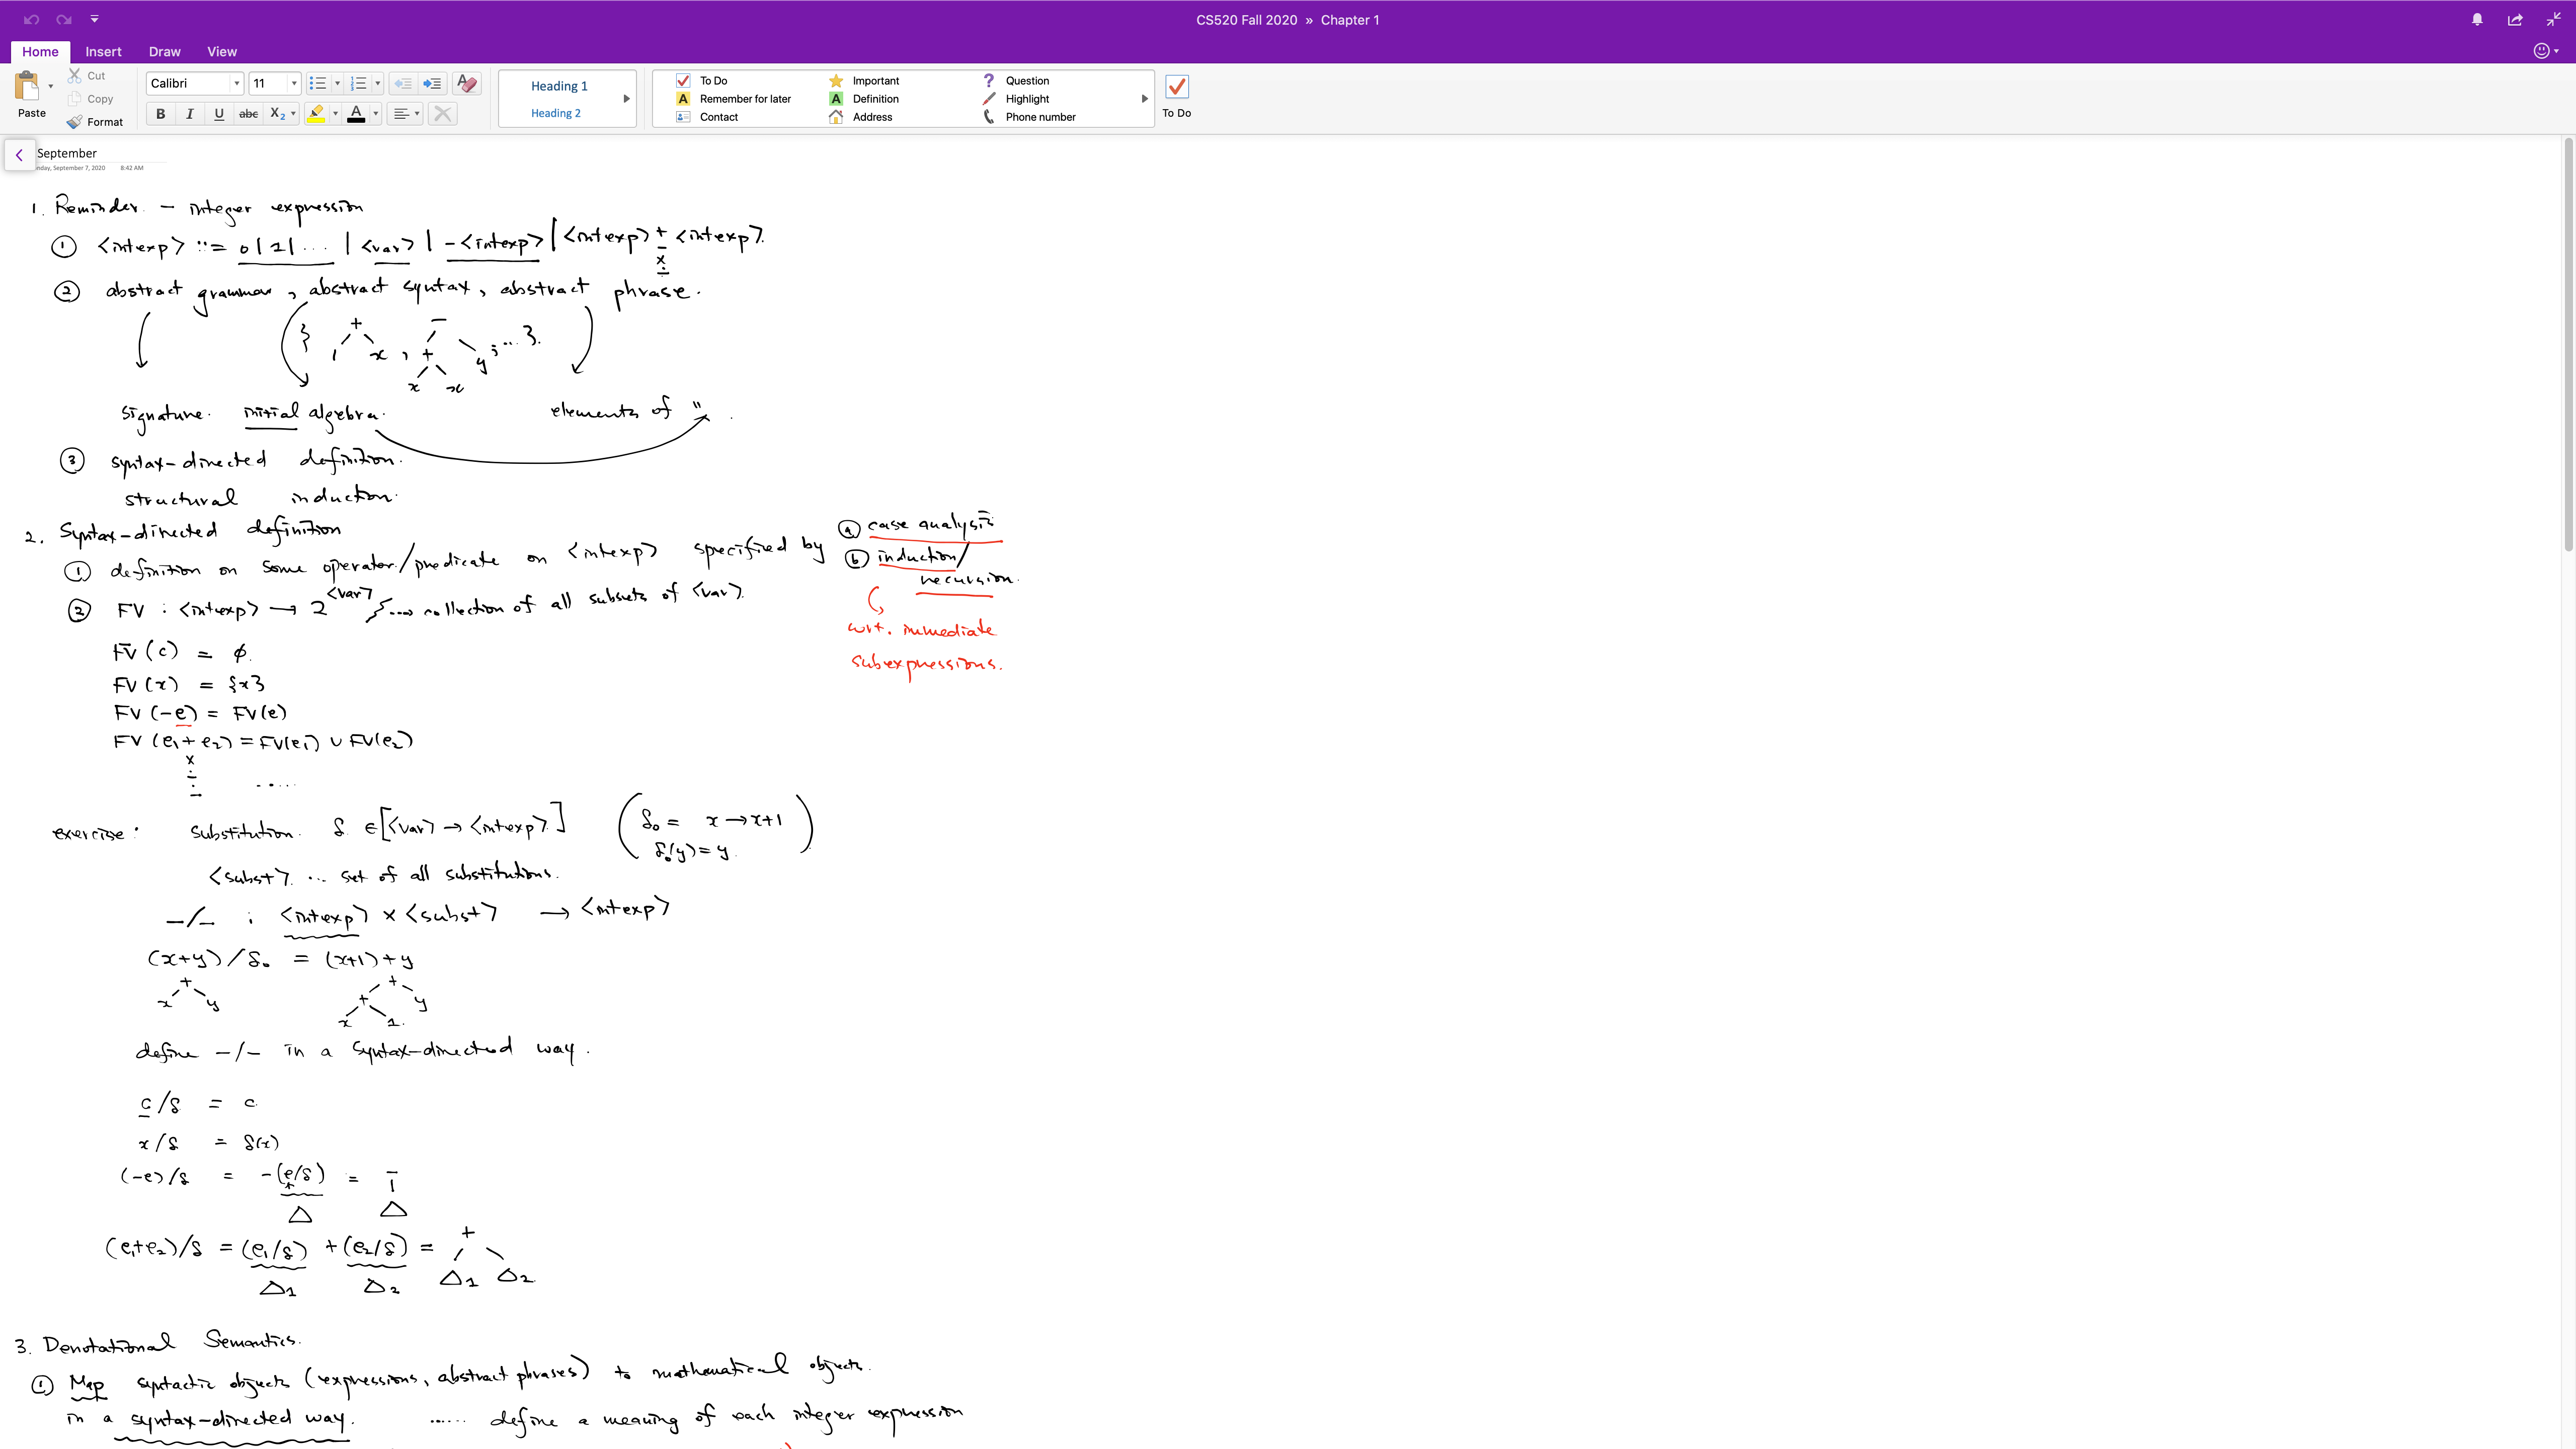 CS520 Fall 2020 » Chapter 1
Home Insert Draw View
Paste
Cut
Copy
Format
Calibri 11
B I U abc X₂ A
Heading 1
Heading 2
To Do Important Question
Remember for later Definition Highlight
Contact Address Phone number
To Do
September
nday, September 7, 2020 8:42 AM
1. Reminder – integer expression
① <intexp> ::= 0 | 1 | ... | <var> | -<intexp> | <intexp> + <intexp>.
- × ÷
② abstract grammar, abstract syntax, abstract phrase.
{ + 1 x , - + x x y , ... }.
signature. initial algebra. elements of "
③ syntax-directed definition.
structural induction.
2. Syntax-directed definition
① definition on some operator/predicate on <intexp> specified by ⓐ case analysis
ⓑ induction/
recursion.
w.r.t. immediate
subexpressions.
② FV : <intexp> → 2^<var> } ...→ collection of all subsets of <var>.
FV(c) = ∅.
FV(x) = {x}
FV(-e) = FV(e)
FV(e₁ + e₂) = FV(e₁) ∪ FV(e₂)
×
÷
- .....
exercise : substitution. δ ∈ [<var> → <intexp>] ( δ₀ = x → x+1
δ₀(y) = y. )
<subst>. ... set of all substitutions.
–/– : <intexp> × <subst> → <intexp>
(x+y)/δ₀ = (x+1)+y
+ +
x y + y
x 1.
define –/– in a syntax-directed way.
c/δ = c
x/δ = δ(x)
(-e)/δ = -(e/δ) = -
△ △
(e₁+e₂)/δ = (e₁/δ) + (e₂/δ) = +
△1 △2 △1 △2
3. Denotational Semantics.
① Map syntactic objects (expressions, abstract phrases) to mathematical objects.
in a syntax-directed way. ...... define a meaning of each integer expression